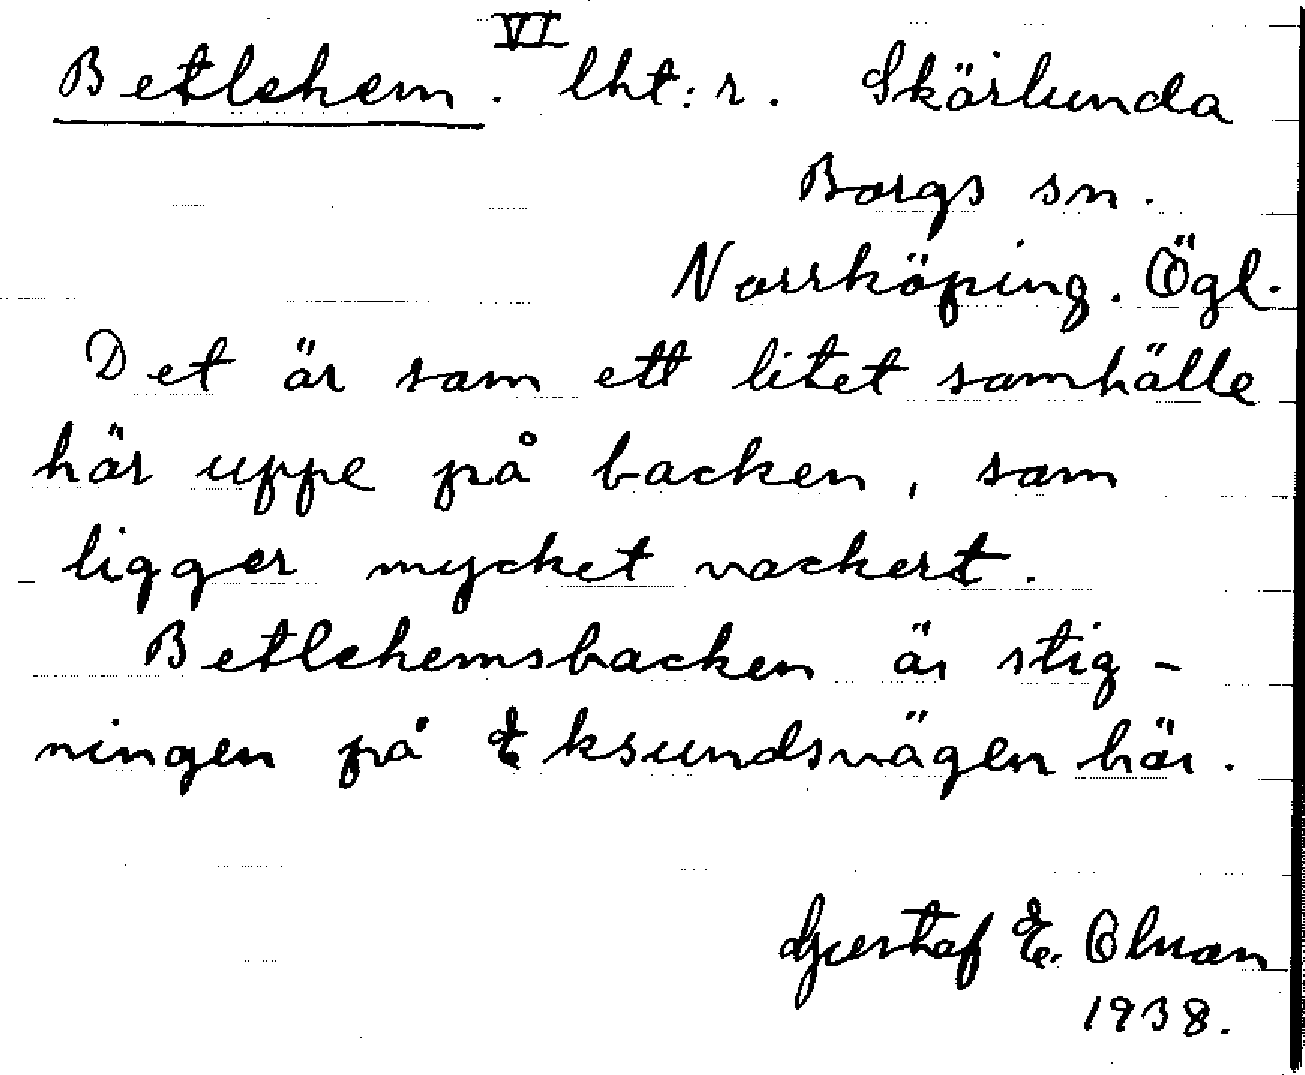 Betlehem. VI lht:r. Skärlunda
Borgs sn.
Norrköping. Ögl.
Det är som ett litet samhälle
här uppe på backen, som
ligger mycket vackert.
Betlehemsbacken är stig-
ningen på Eksundsvägen här.
Gustaf E. Olman
1938.